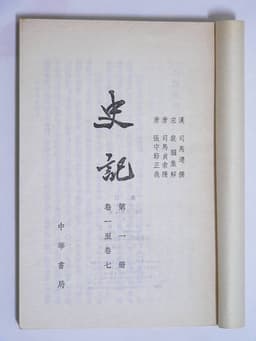 漢 司馬遷 撰
宋 裴駰集解
唐 司馬貞索隱
唐 張守節正義
史記
第一册
卷一至卷七
中華書局